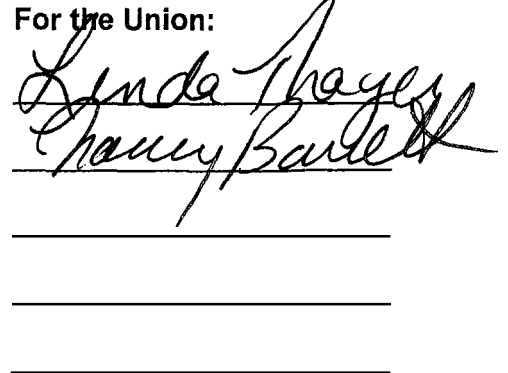 For the Union:
Linda Thayer
Nancy Barrett